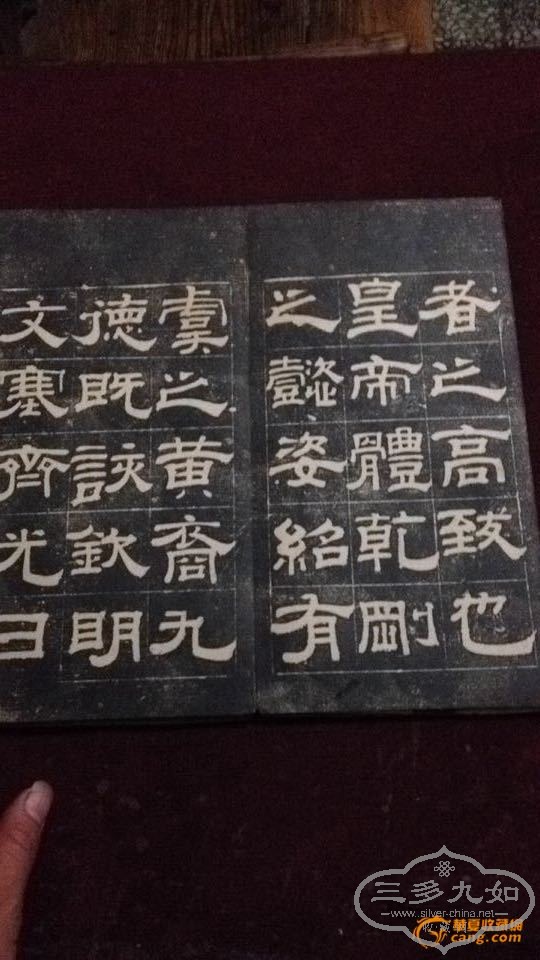 者之高致也
皇帝體乾剛
之懿姿紹有
虞之黄裔九
德既該欽明
文塞齊光日
三多九如
www.silver-china.net
華夏收藏網
cang.com